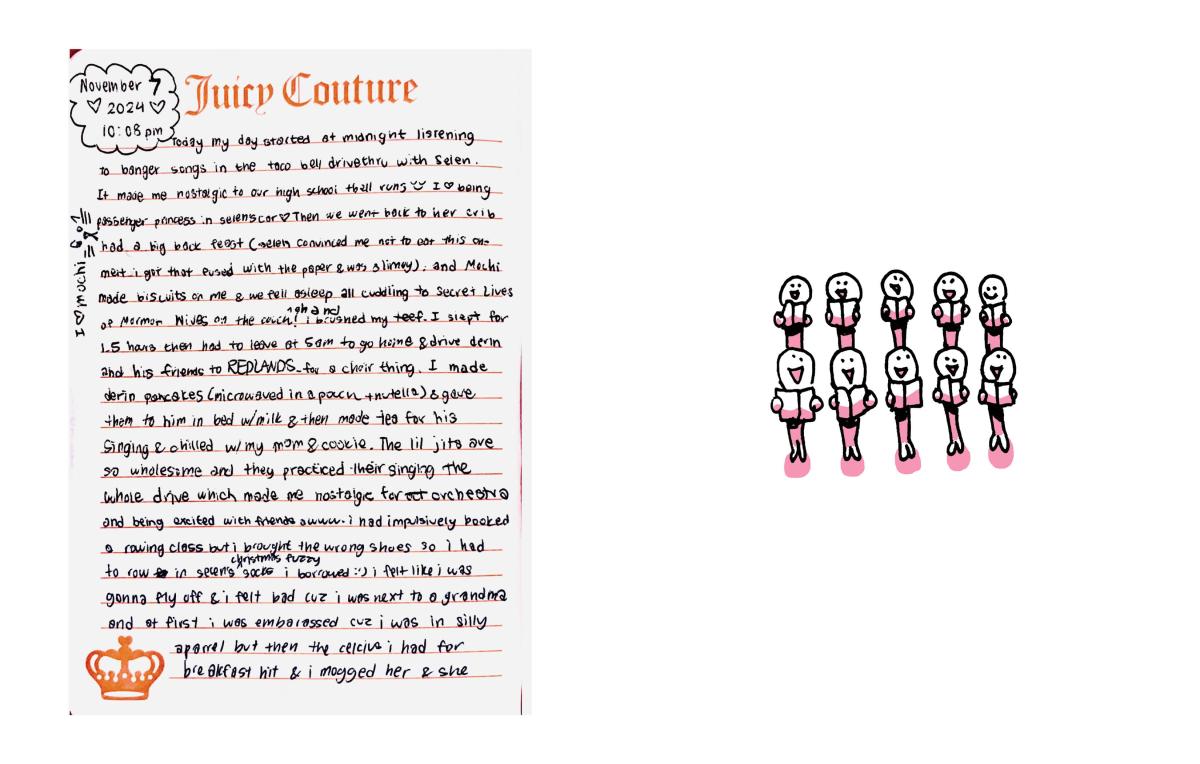 November 7
♡ 2024 ♡
10:08 pm
Juicy Couture
Today my day started at midnight listening
to banger songs in the taco bell drivethru with Selen.
It made me nostalgic to our high school tbell runs I ♡ being
passenger princess in selens car ♡ Then we went back to her crib
had a big back feast (selen convinced me not to eat this one
meat i got that fused with the paper & was slimey), and Mochi
made biscuits on me & we fell asleep all cuddling to Secret Lives
of Mormon Wives on the couch! i brushed my teef. I slept for
1.5 hours then had to leave at 5am to go home & drive derin
and his friends to REDLANDS for a choir thing. I made
derin pancakes (microwaved in a pouch + nutella) & gave
them to him in bed w/milk & then made tea for his
singing & chilled w/ my mom & cookie. The lil jits are
so wholesome and they practiced their singing the
whole drive which made me nostalgic for orchestra
and being excited with friends awww. i had impulsively booked
a rowing class but i brought the wrong shoes so i had
to row in selen's christmas fuzzy socks i borrowed :') i felt like i was
gonna fly off & i felt bad cuz i was next to a grandma
and at first i was embarassed cuz i was in silly
aparrel but then the celcius i had for
breakfast hit & i mogged her & she
I ♡ mochi